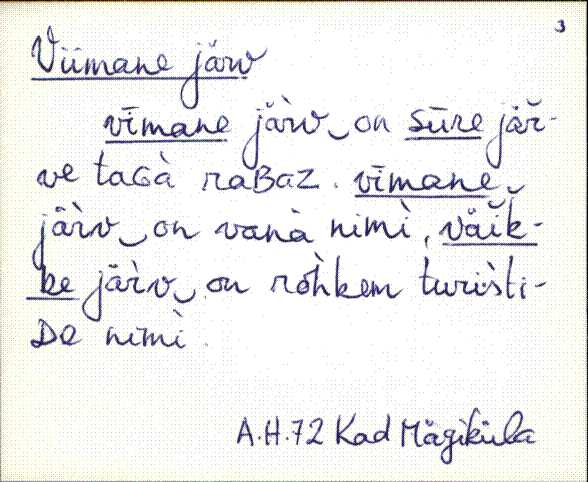 3
Viimane järv
vīmane järv‿on sūre jä̆r-
ve taGà raBaZ. vīmane
jär̀v‿on vanà nimì, väĭk-
ke jär̀v‿on rohkem turìsti-
De nimì.
A.H.72 Kad Mägiküla